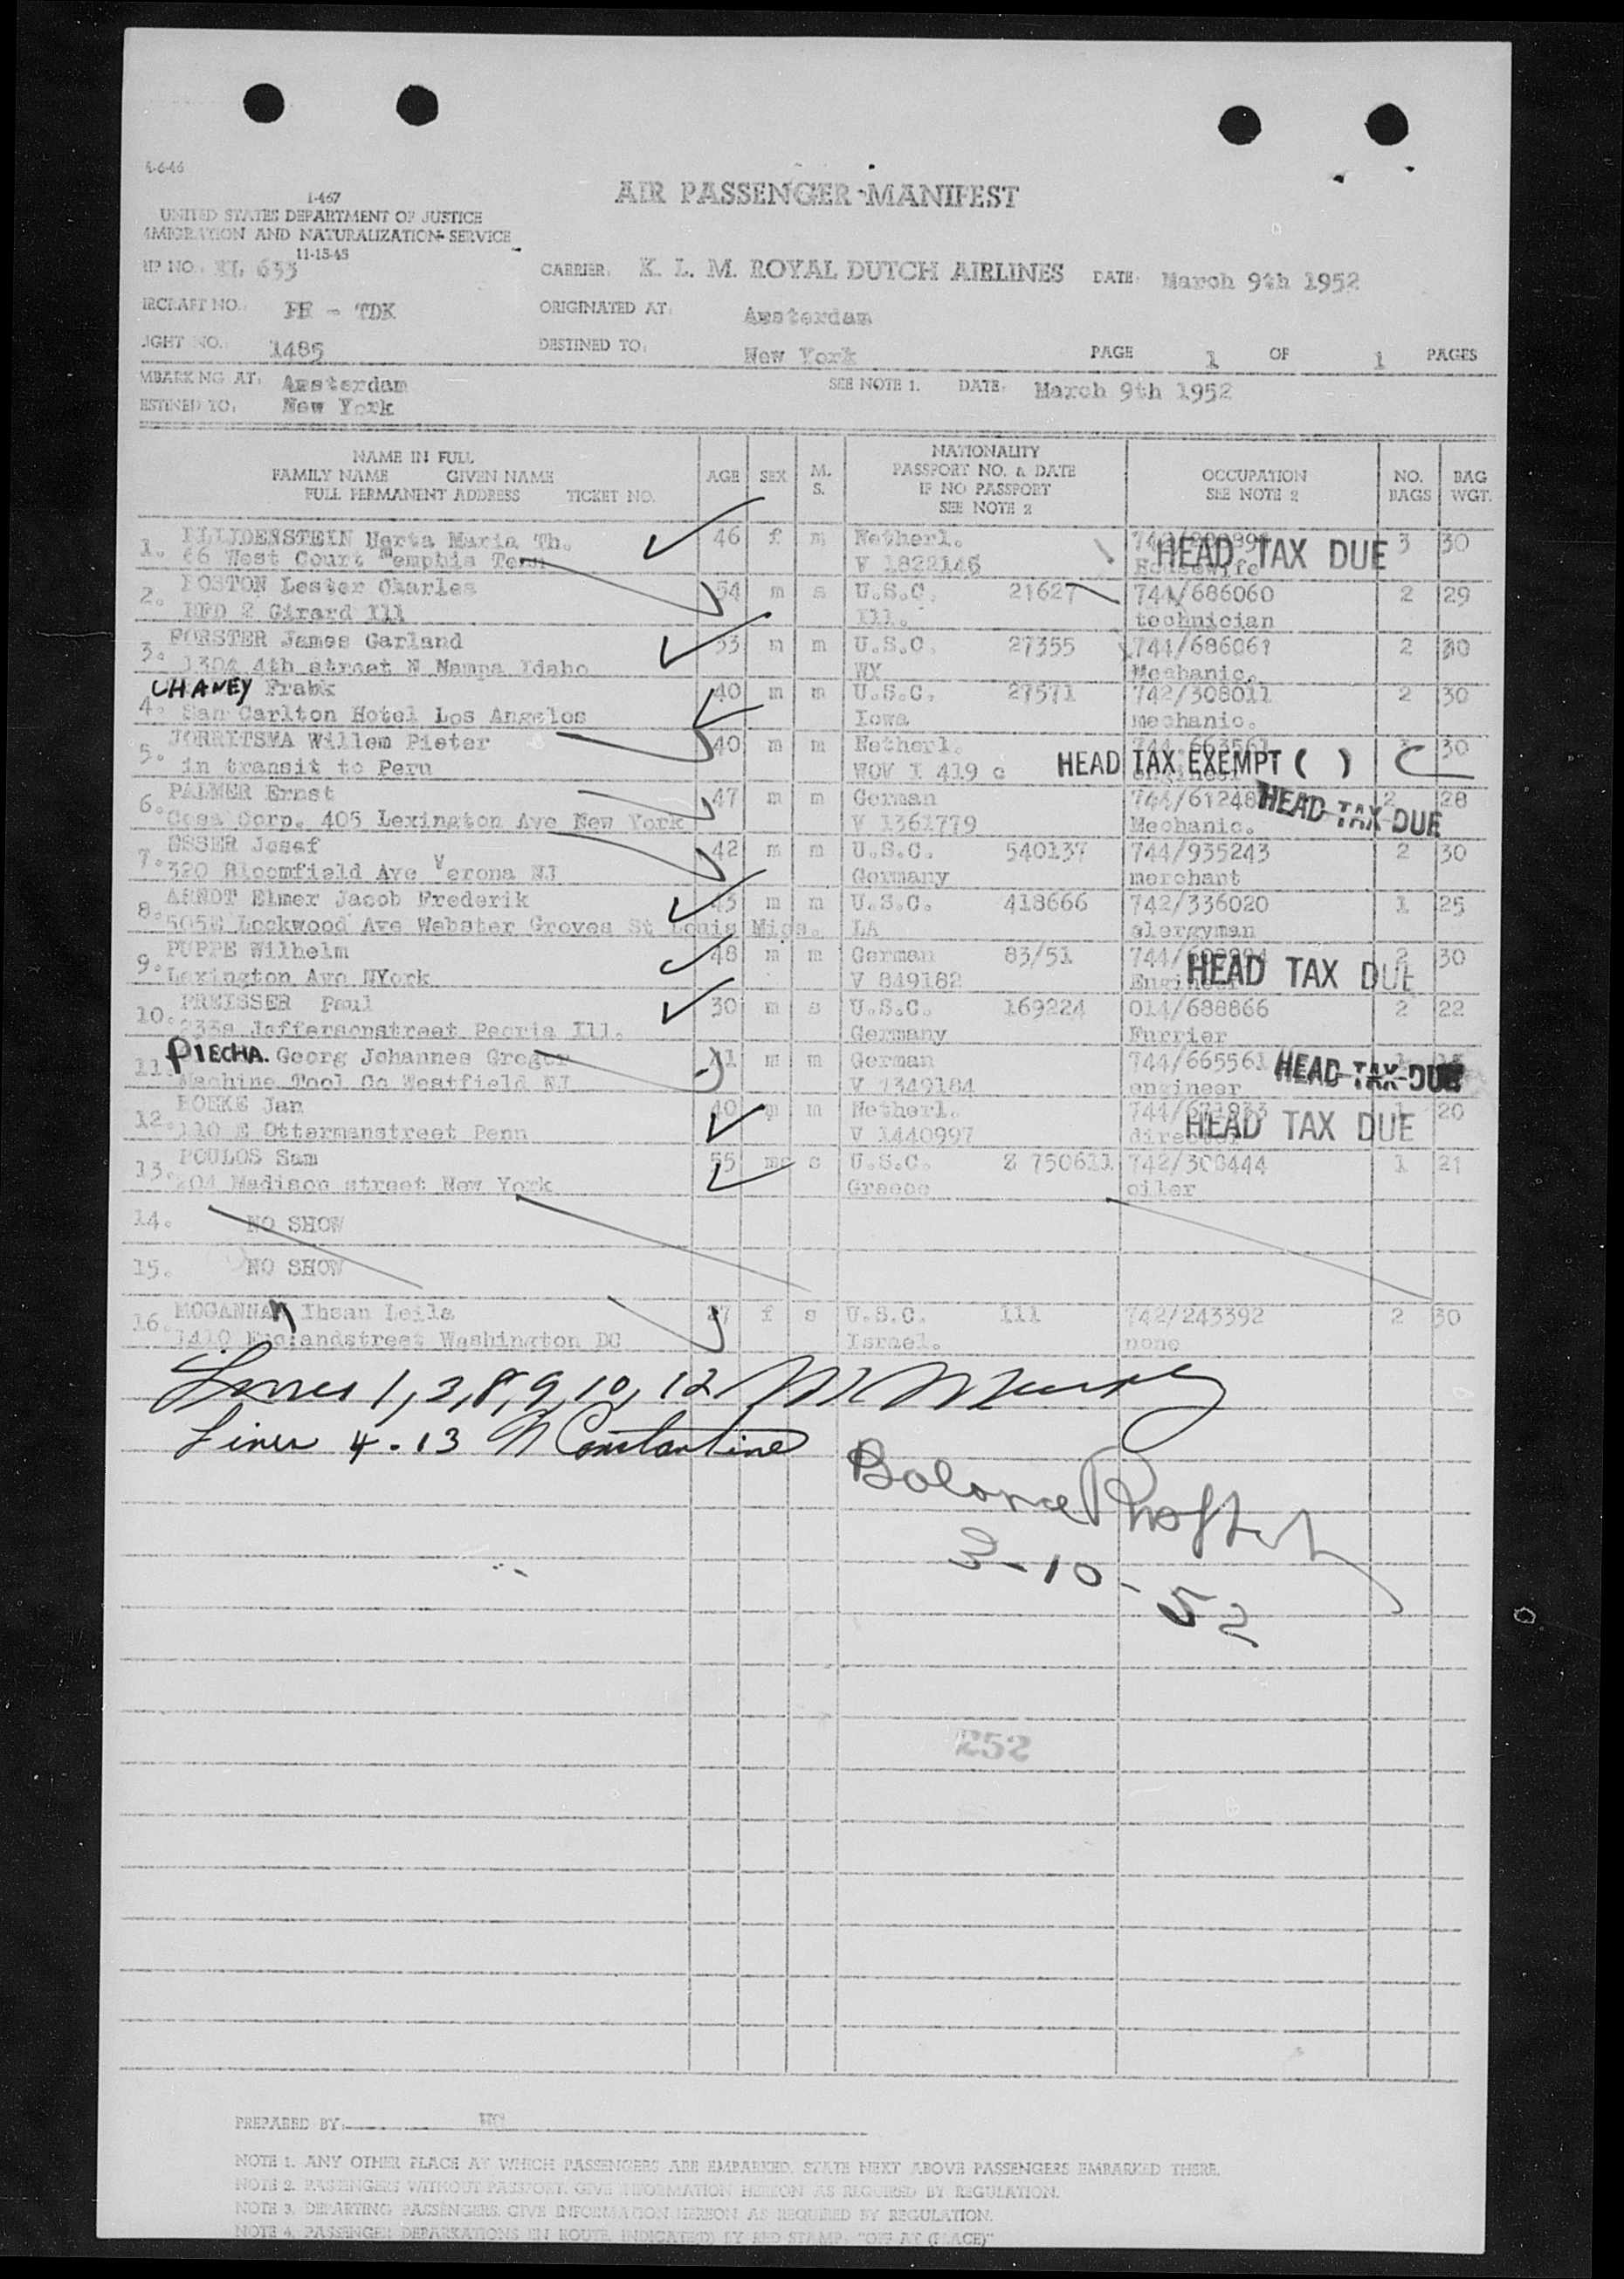 4-6-46
I-467
UNITED STATES DEPARTMENT OF JUSTICE
IMMIGRATION AND NATURALIZATION SERVICE
11-15-45
AIR PASSENGER MANIFEST
RIP NO. KL 633
CARRIER: K. L. M. ROYAL DUTCH AIRLINES DATE: March 9th 1952
IRCRAFT NO. PH - TDK
ORIGINATED AT: Amsterdam
IGHT NO. 1485
DESTINED TO: New York PAGE 1 OF 1 PAGES
MBARKING AT: Amsterdam SEE NOTE 1. DATE: March 9th 1952
ESTINED TO: New York
NAME IN FULL
FAMILY NAME GIVEN NAME
FULL PERMANENT ADDRESS TICKET NO.
AGE SEX M. S.
NATIONALITY
PASSPORT NO. & DATE
IF NO PASSPORT
SEE NOTE 2
OCCUPATION
SEE NOTE 2
NO. BAGS
BAG WGT.
1. Herta Maria Th. 46 f m Netherl. 3 30
66 West Court Memphis Tenn V 1822146 Housewife
HEAD TAX DUE
2. POSTON Lester Charles 54 m s U.S.C. 21627 744/686060 2 29
RFD 2 Girard Ill Ill. technician
3. FORSTER James Garland 33 m m U.S.C. 27355 744/686061 2 30
1304 4th street N Nampa Idaho WX Mechanic.
4. CHANEY Frank 40 m m U.S.C. 27571 742/308011 2 30
San Carlton Hotel Los Angelos Iowa mechanic.
5. JORRITSMA Willem Pieter 40 m m Netherl. 744.663561 30
in transit to Peru WOV I 419 c
HEAD TAX EXEMPT ( )
6. PALMER Ernst 47 m m German 744/61248 2 28
Cosa Corp. 405 Lexington Ave New York V 1361779 Mechanic.
HEAD TAX DUE
7. ESSER Josef 42 m m U.S.C. 540137 744/935243 2 30
320 Bloomfield Ave Verona NJ Germany merchant
8. ARNDT Elmer Jacob Frederik 43 m m U.S.C. 418666 742/336020 1 25
505E Lockwood Ave Webster Groves St Louis Miss. LA clergyman
9. PUPPE Wilhelm 48 m m German 83/51 2 30
Lexington Ave NYork V 849182 Engineer
HEAD TAX DUE
10. PREISSER Paul 30 m s U.S.C. 169224 014/688866 2 22
233a Jeffersonstreet Peoria Ill. Germany Furrier
11. PIECHA. Georg Johannes Gregor 41 m m German 744/665561
Machine Tool Co Westfield NJ V 1349184 engineer
HEAD TAX DUE
12. BOEKE Jan 40 m m Netherl. 1 20
110 E Ottermanstreet Penn V 1440997 director
HEAD TAX DUE
13. POULOS Sam 55 m s U.S.C. Z 750611 742/308444 1 21
204 Madison street New York Greece oiler
14. NO SHOW
15. NO SHOW
16. MOGANNAM Ihsan Leila 27 f s U.S.C. 111 742/243392 2 30
1410 Washington DC Israel. none
Lines 1, 3, 8, 9, 10, 12 M Murphy
Lines 4. 13 N Constantine
Balance
3-10-52
252
PREPARED BY:
NOTE 1. ANY OTHER PLACE AT WHICH PASSENGERS ARE EMBARKED, STATE NEXT ABOVE PASSENGERS EMBARKED THERE.
NOTE 2. PASSENGERS WITHOUT PASSPORT, GIVE INFORMATION HEREON AS REQUIRED BY REGULATION.
NOTE 3. DEPARTING PASSENGERS, GIVE INFORMATION HEREON AS REQUIRED BY REGULATION.
NOTE 4. PASSENGER DEPARKATIONS EN ROUTE, INDICATE(D) BY RED STAMP: "OFF AT (PLACE)"